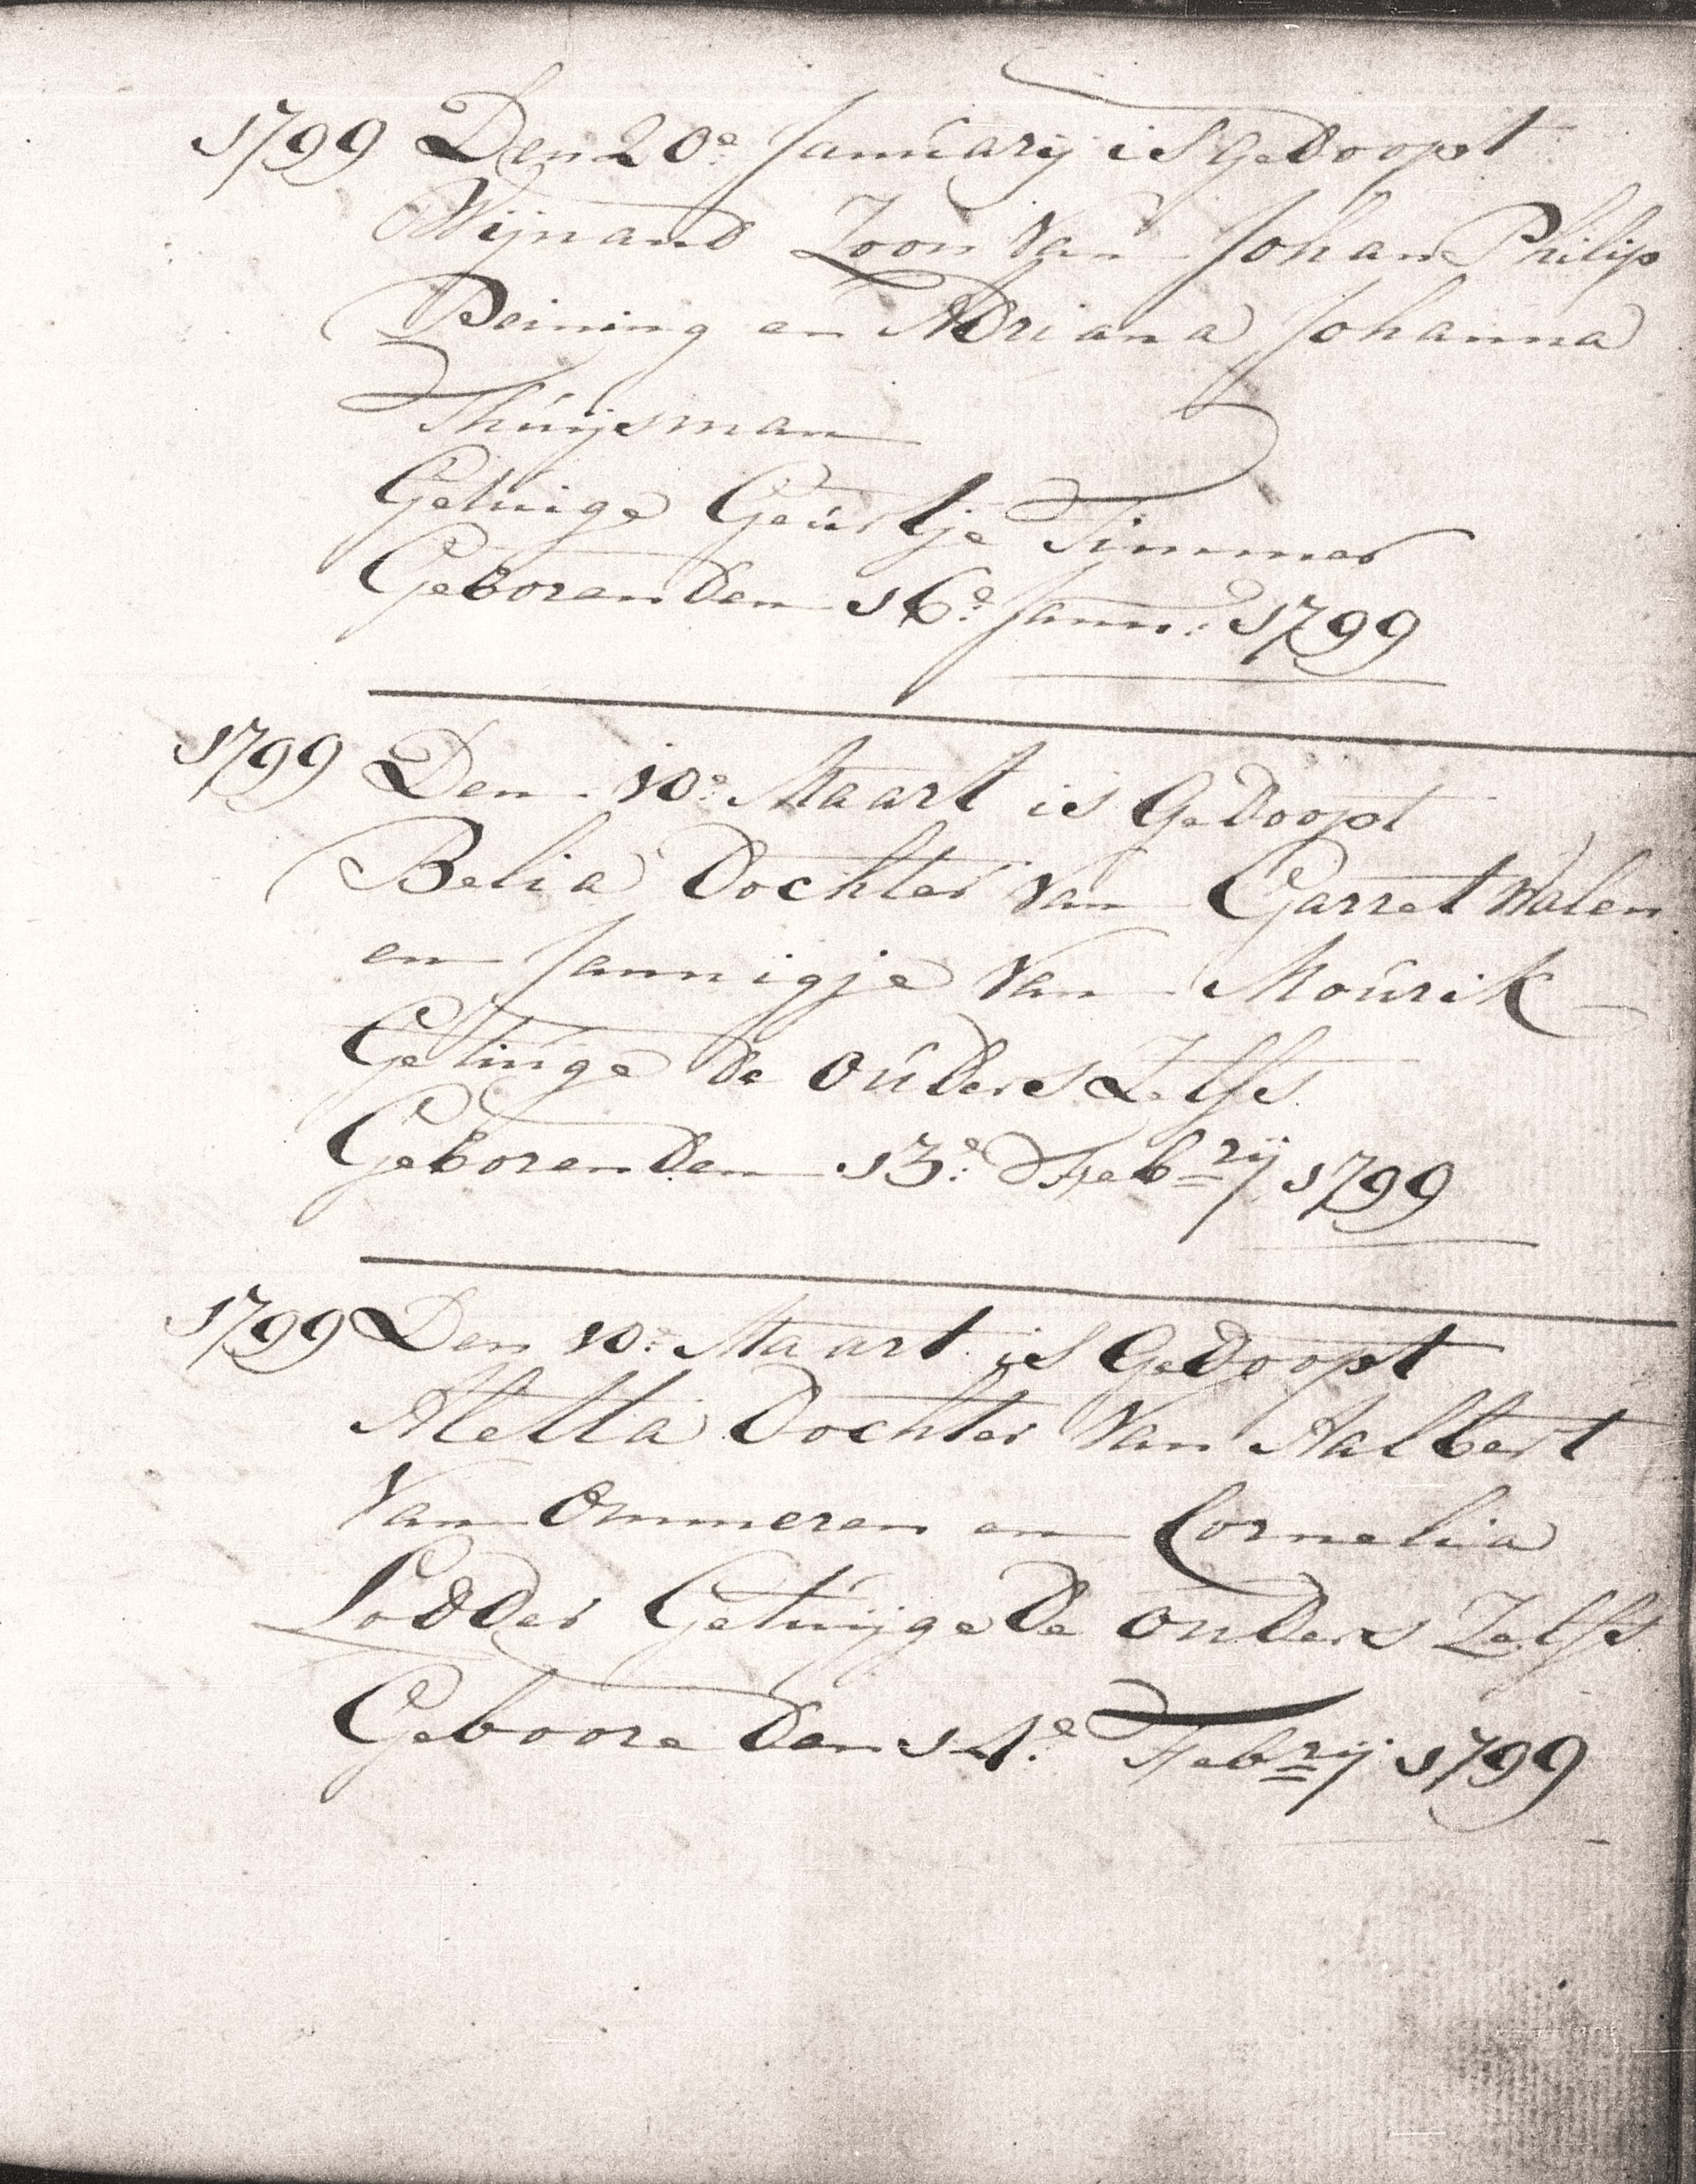 1799 Den 20e: Januarij is gedoopt
Wijnand Zoon Van Johan Philip
Peining en Adriana Johanna
Thuijsman
Getuige Geurtje Timmer
Geboren den 16e: Jann: 1799
1799 Den 10e: Maart is Gedoopt
Belia Dochter Van Garret Walen
en Jannigje Van Mourik
Getuige de ouders Zelfs
Geboren den 13e: Febrij 1799
1799 Den 10e: Maart is Gedoopt
Aletta Dochter Van Aalbert
Van Ommeren en Cornelia
Lodder Getuijge de ouders Zelfs
Geboore den 14e: Febrij 1799